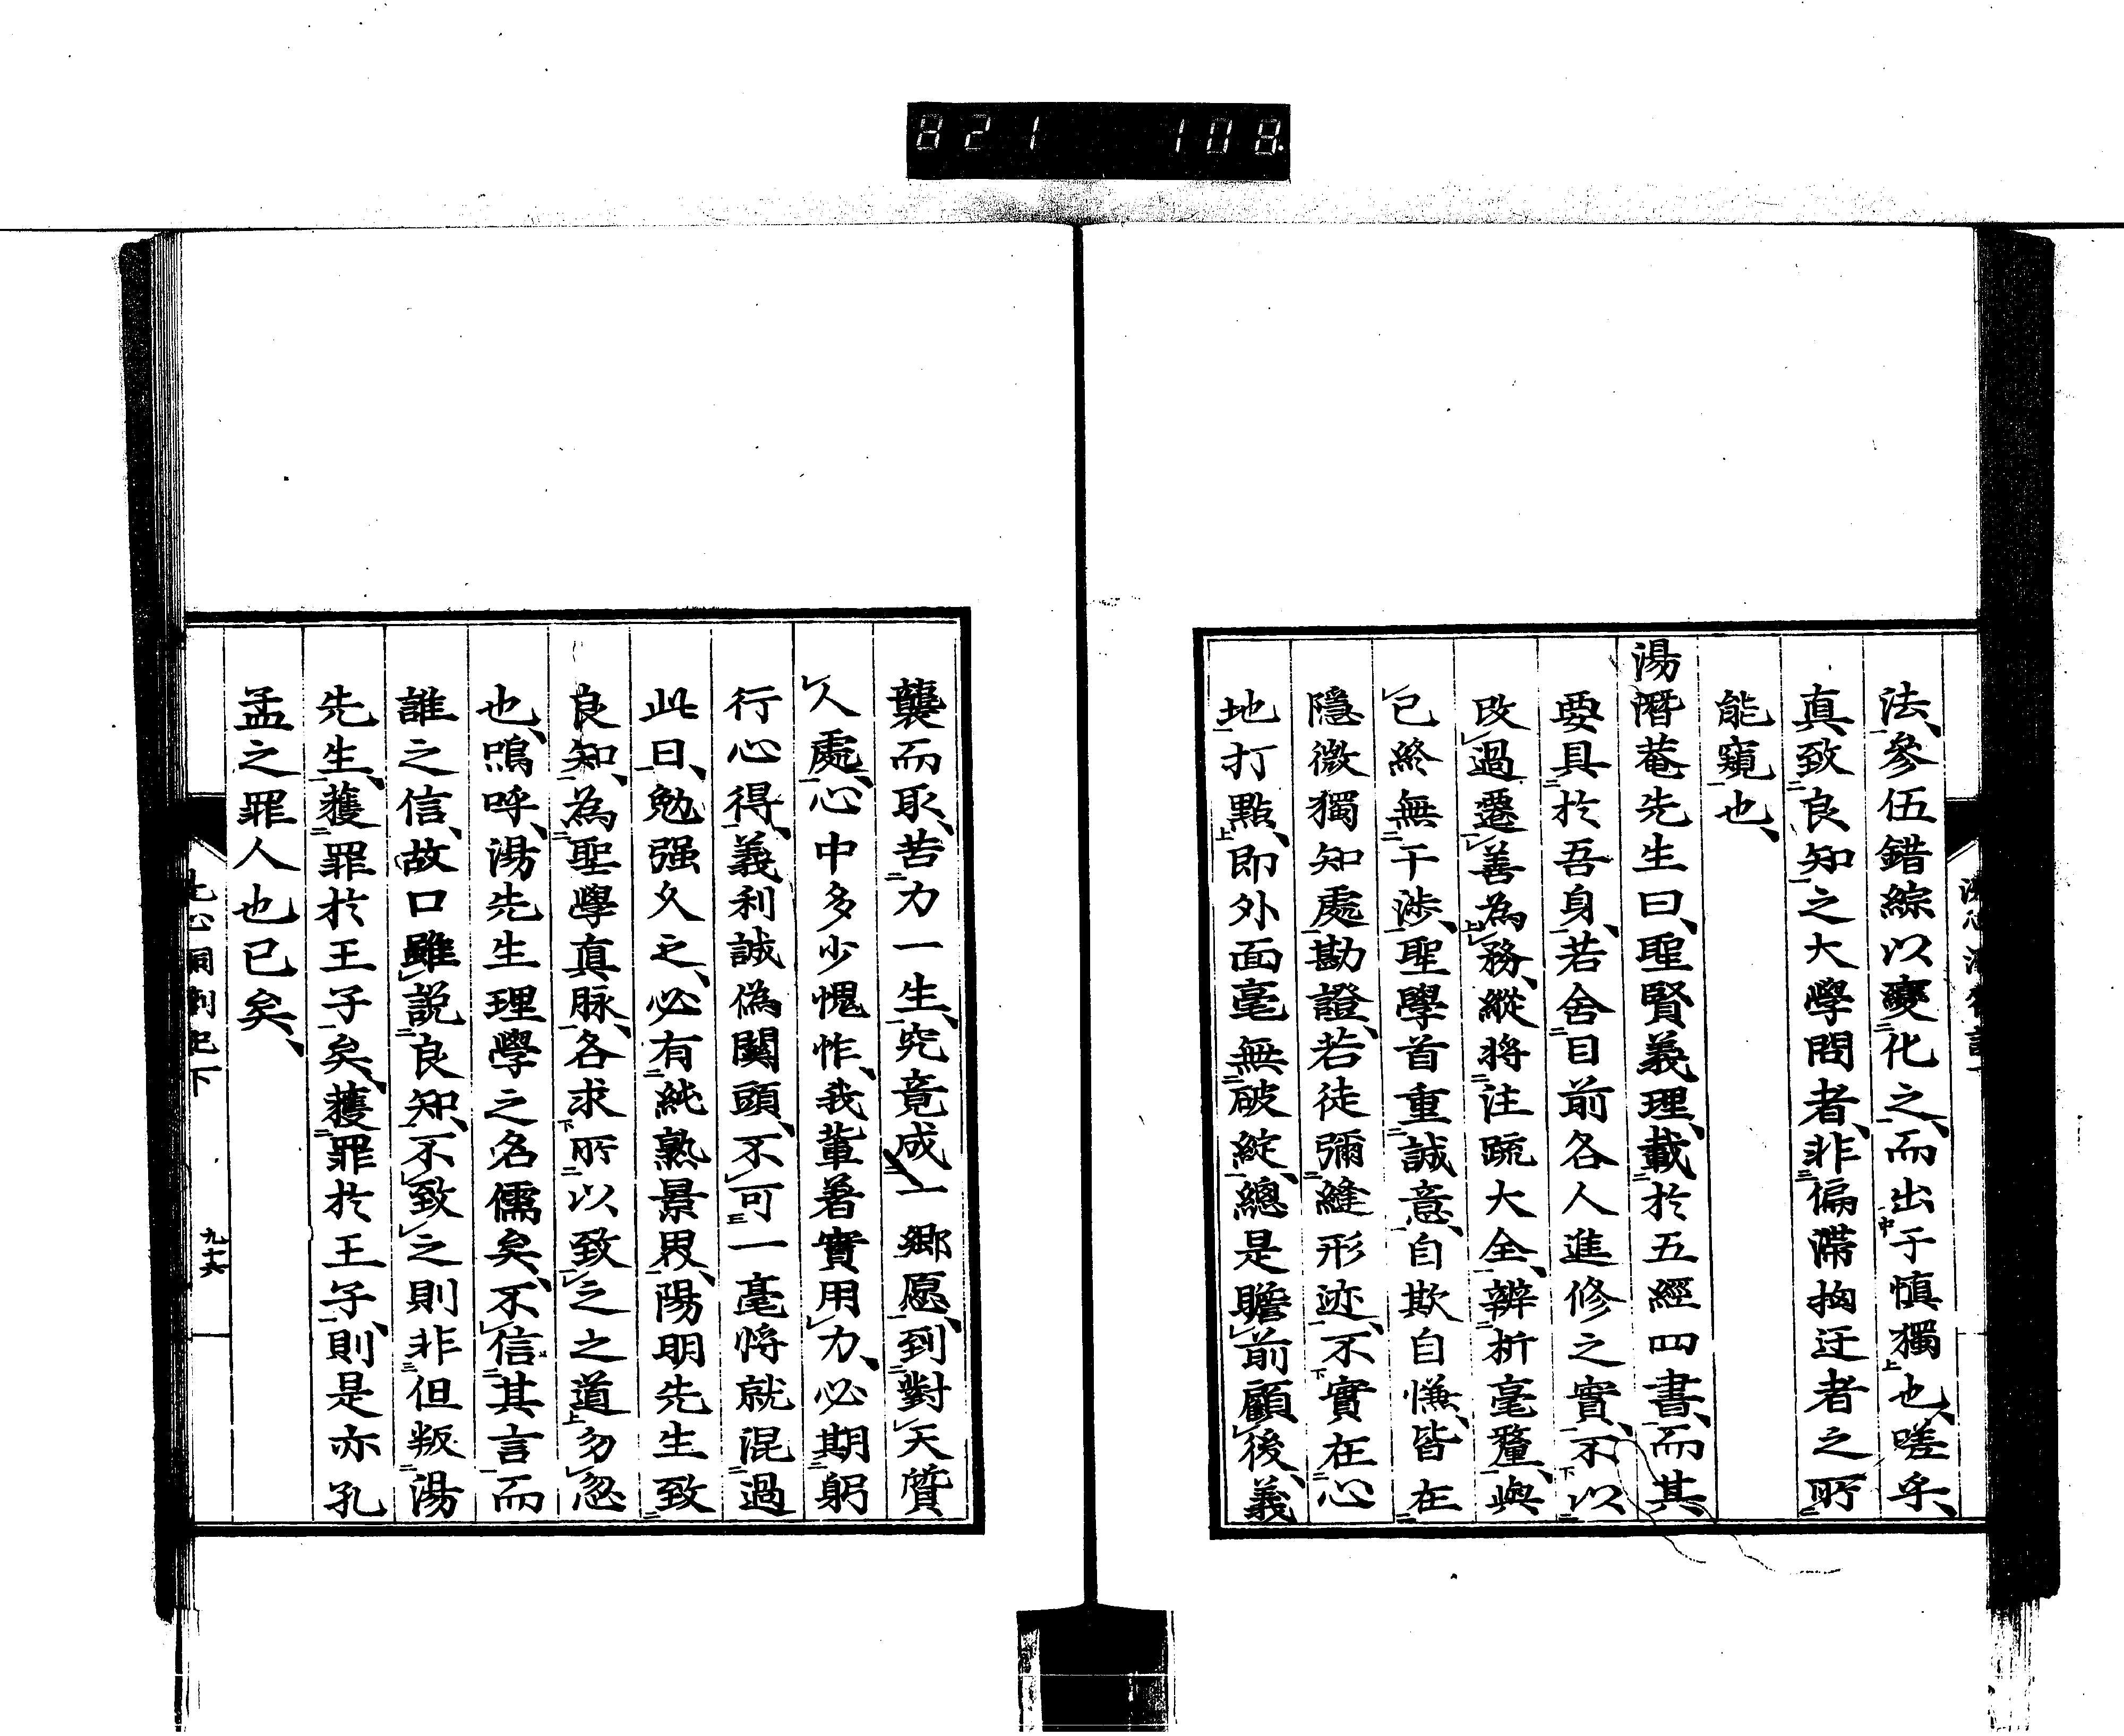 821 108
法、參伍錯綜以變化之、而出于慎獨也、嗟乎、
真致良知之大學問者、非偏滯拘迂者之所
能窺也、
湯潛菴先生曰、聖賢義理、載於五經四書、而其
要具於吾身、若舍目前各人進修之實、不以
改過遷善為務、縱將注疏大全、辨析毫釐、與
已終無干涉、聖學首重誠意、自欺自慊、皆在
隱微獨知處勘證、若徒彌縫形迹、不實在心
地打點、即外面毫無破綻、總是瞻前顧後、義
襲而取、苦力一生、究竟成一鄉愿、到對天質
人處、心中多少愧怍、我輩著實用力、必期躬
行心得、義利誠偽關頭、不可一毫將就混過
此日、勉强久之、必有純熟景界、陽明先生致
良知、為聖學真脉、各求所以致之之道勿忽
也、嗚呼、湯先生理學之名儒矣、不信其言而
誰之信、故口雖說良知、不致之則非但叛湯
先生、獲罪於王子矣、獲罪於王子、則是亦孔
孟之罪人也已矣、
洞劄記下
九十六